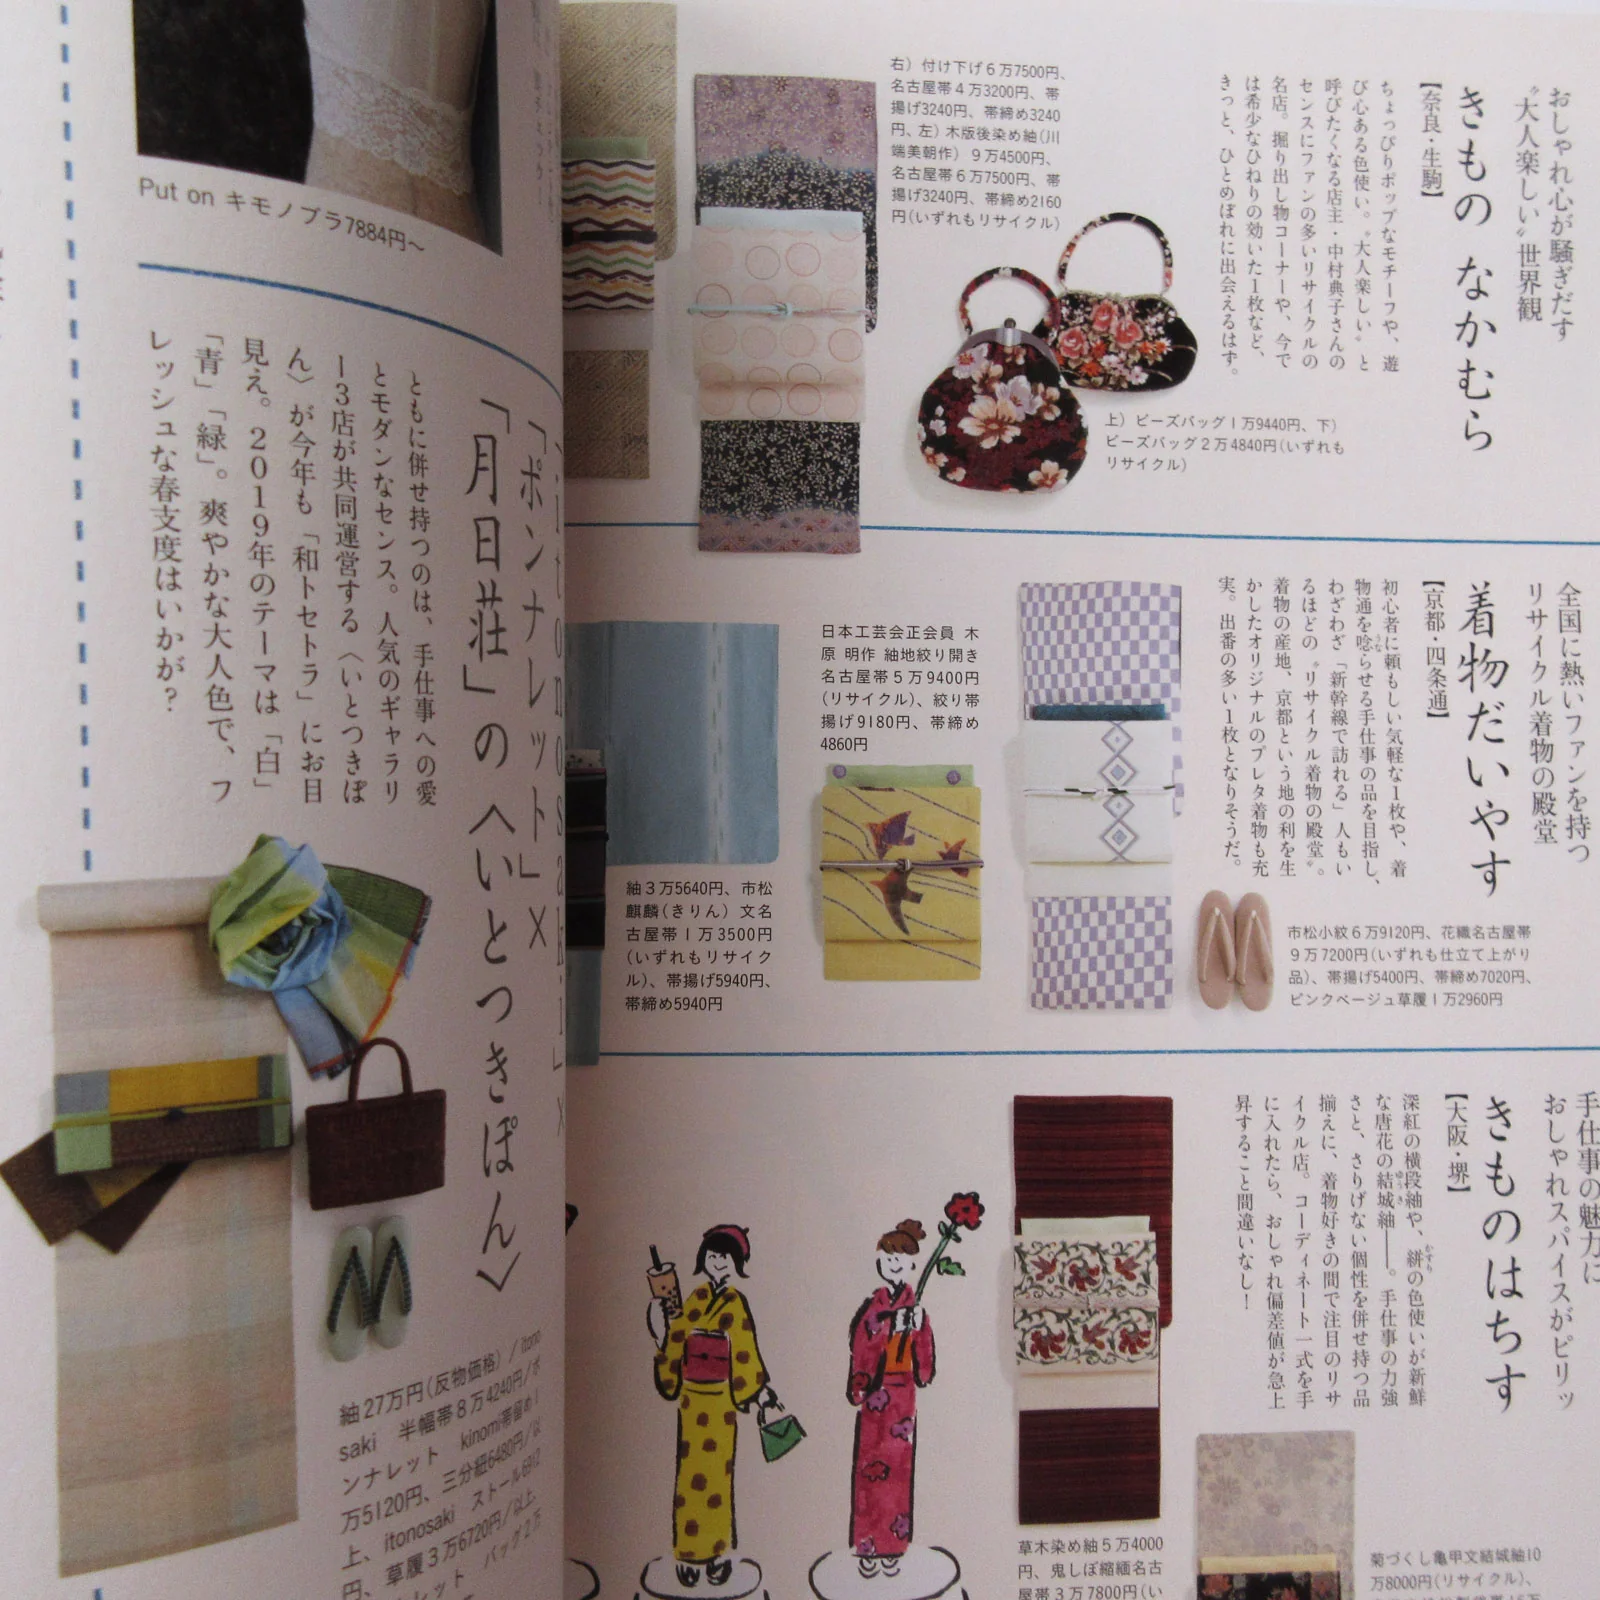 おしゃれ心が騒ぎだす
“大人楽しい”世界観
きもの なかむら
【奈良・生駒】
ちょっぴりポップなモチーフや、遊
び心ある色使い。“大人楽しい”と
呼びたくなる店主・中村典子さんの
センスにファンの多いリサイクルの
名店。掘り出し物コーナーや、今で
は希少なひねりの効いた1枚など、
きっと、ひとめぼれに出会えるはず。
右）付け下げ6万7500円、
名古屋帯4万3200円、帯
揚げ3240円、帯締め3240
円、左）木版後染め紬(川
端美朝作）9万4500円、
名古屋帯6万7500円、帯
揚げ3240円、帯締め2160
円(いずれもリサイクル)
上）ビーズバッグ1万9440円、下）
ビーズバッグ2万4840円(いずれも
リサイクル)
全国に熱いファンを持つ
リサイクル着物の殿堂
着物だいやす
【京都・四条通】
初心者に頼もしい気軽な1枚や、着
物通を唸らせる手仕事の品を目指し、
わざわざ「新幹線で訪れる」人もい
るほどの“リサイクル着物の殿堂”。
着物の産地、京都という地の利を生
かしたオリジナルのプレタ着物も充
実。出番の多い1枚となりそうだ。
日本工芸会正会員 木
原 明作 紬地絞り開き
名古屋帯5万9400円
(リサイクル)、絞り帯
揚げ9180円、帯締め
4860円
紬3万5640円、市松
麒麟(きりん) 文名
古屋帯1万3500円
(いずれもリサイク
ル)、帯揚げ5940円、
帯締め5940円
市松小紋6万9120円、花織名古屋帯
9万7200円(いずれも仕立て上がり
品)、帯揚げ5400円、帯締め7020円、
ピンクベージュ草履1万2960円
手仕事の魅力に
おしゃれスパイスがピリッ
きものはちす
【大阪・堺】
深紅の横段紬や、絣の色使いが新鮮
な唐花の結城紬――。手仕事の力強
さと、さりげない個性を併せ持つ品
揃えに、着物好きの間で注目のリサ
イクル店。コーディネート一式を手
に入れたら、おしゃれ偏差値が急上
昇すること間違いなし！
草木染め紬5万4000
円、鬼しぼ縮緬名古
屋帯3万7800円(い
菊づくし亀甲文結城紬10
万8000円(リサイクル)、
Put on キモノブラ7884円～
「itonosaki」×
「ポンナレット」×
「月日荘」の〈いとつきぽん〉
ともに併せ持つのは、手仕事への愛
とモダンなセンス。人気のギャラリ
ー3店が共同運営する〈いとつきぽ
ん〉が今年も「和トセトラ」にお目
見え。2019年のテーマは「白」
「青」「緑」。爽やかな大人色で、フ
レッシュな春支度はいかが？
紬27万円(反物価格)/itono
saki 半幅帯8万4240円/ポ
ンナレット kinomi帯留め1
万5120円、三分紐6480円/以
上、itonosaki ストール6912
円、草履3万6720円/以上、
レット バッグ2万